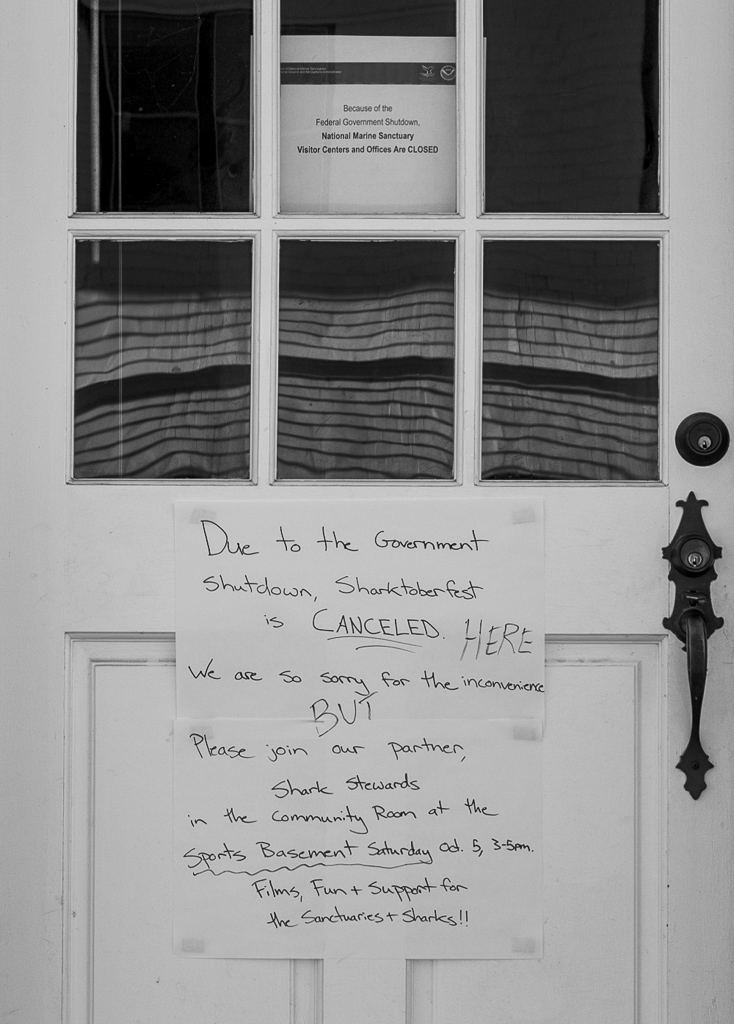 Because of the
Federal Government Shutdown,
National Marine Sanctuary
Visitor Centers and Offices Are CLOSED
Due to the Government
Shutdown, Sharktoberfest
is CANCELED. HERE
We are so sorry for the inconvenience
BUT
Please join our partner,
Shark Stewards
in the Community Room at the
Sports Basement Saturday Oct. 5, 3-5pm.
Films, Fun + Support for
the Sanctuaries + Sharks!!